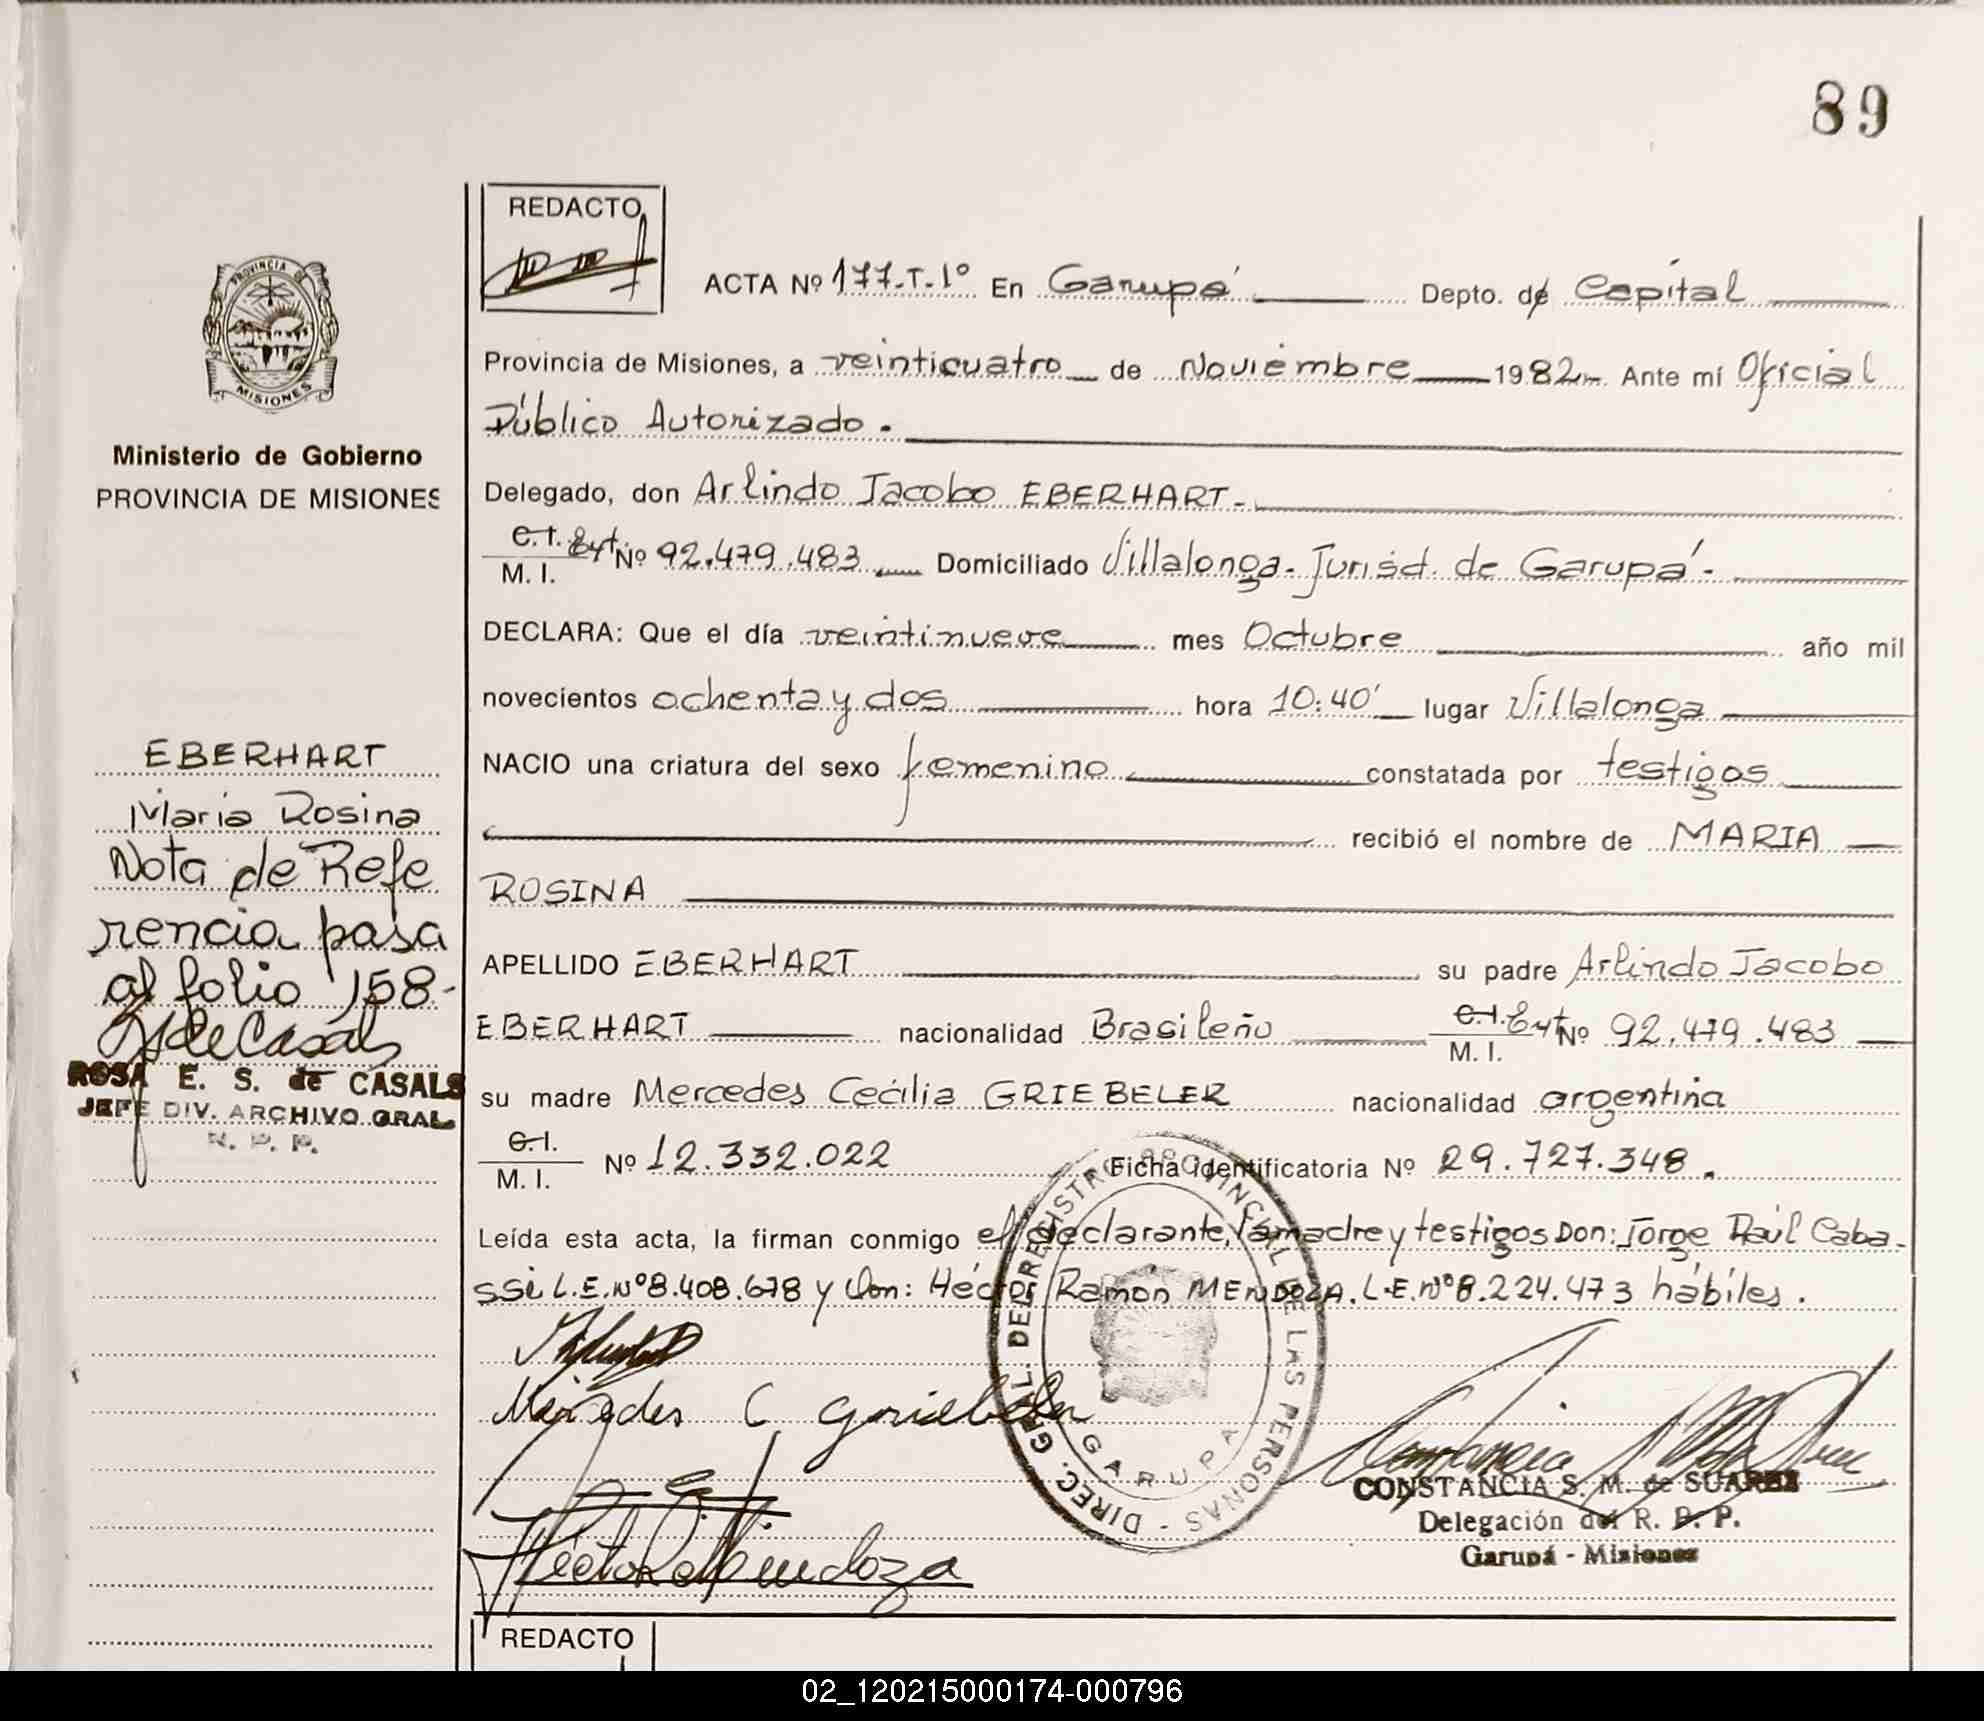 89
REDACTO
ACTA Nº 177-T-1º En Garupá Depto. de Capital
PROVINCIA DE
MISIONES
Provincia de Misiones, a veinticuatro de Noviembre 1982 Ante mí Oficial
Público Autorizado.
Ministerio de Gobierno
PROVINCIA DE MISIONES
Delegado, don Arlindo Jacobo EBERHART-
C.I. Ext Nº 92.479.483 Domiciliado Villalonga- Jurisd. de Garupá-
M. I.
DECLARA: Que el día veintinueve mes Octubre año mil
novecientos ochenta y dos hora 10:40' lugar Villalonga
NACIO una criatura del sexo femenino constatada por testigos
recibió el nombre de MARIA
ROSINA
APELLIDO EBERHART su padre Arlindo Jacobo
EBERHART nacionalidad Brasileño C.I. Ext Nº 92.479.483
M. I.
su madre Mercedes Cecilia GRIEBELER nacionalidad argentina
C.I.
M. I. Nº 12.332.022 Ficha identificatoria Nº 29.727.348.
Leída esta acta, la firman conmigo el declarante, la madre y testigos Don: Jorge Raúl Caba-
ssi L.E.Nº8.408.678 y Don: Héctor Ramón MENDOZA. L.E.Nº8.224.473 hábiles.
EBERHART
María Rosina
Nota de Refe
rencia pasa
al folio 158-
RS de Casals
ROSA E. S. de CASALS
JEFE DIV. ARCHIVO GRAL
R. P. P.
Mercedes C Griebeler
Héctor R Mendoza
DIREC. GRAL. DEL REGISTRO PROVINCIAL DE LAS PERSONAS -
GARUPA
CONSTANCIA S. M. de SUAREZ
Delegación del R. P. P.
Garupá - Misiones
REDACTO
02_120215000174-000796